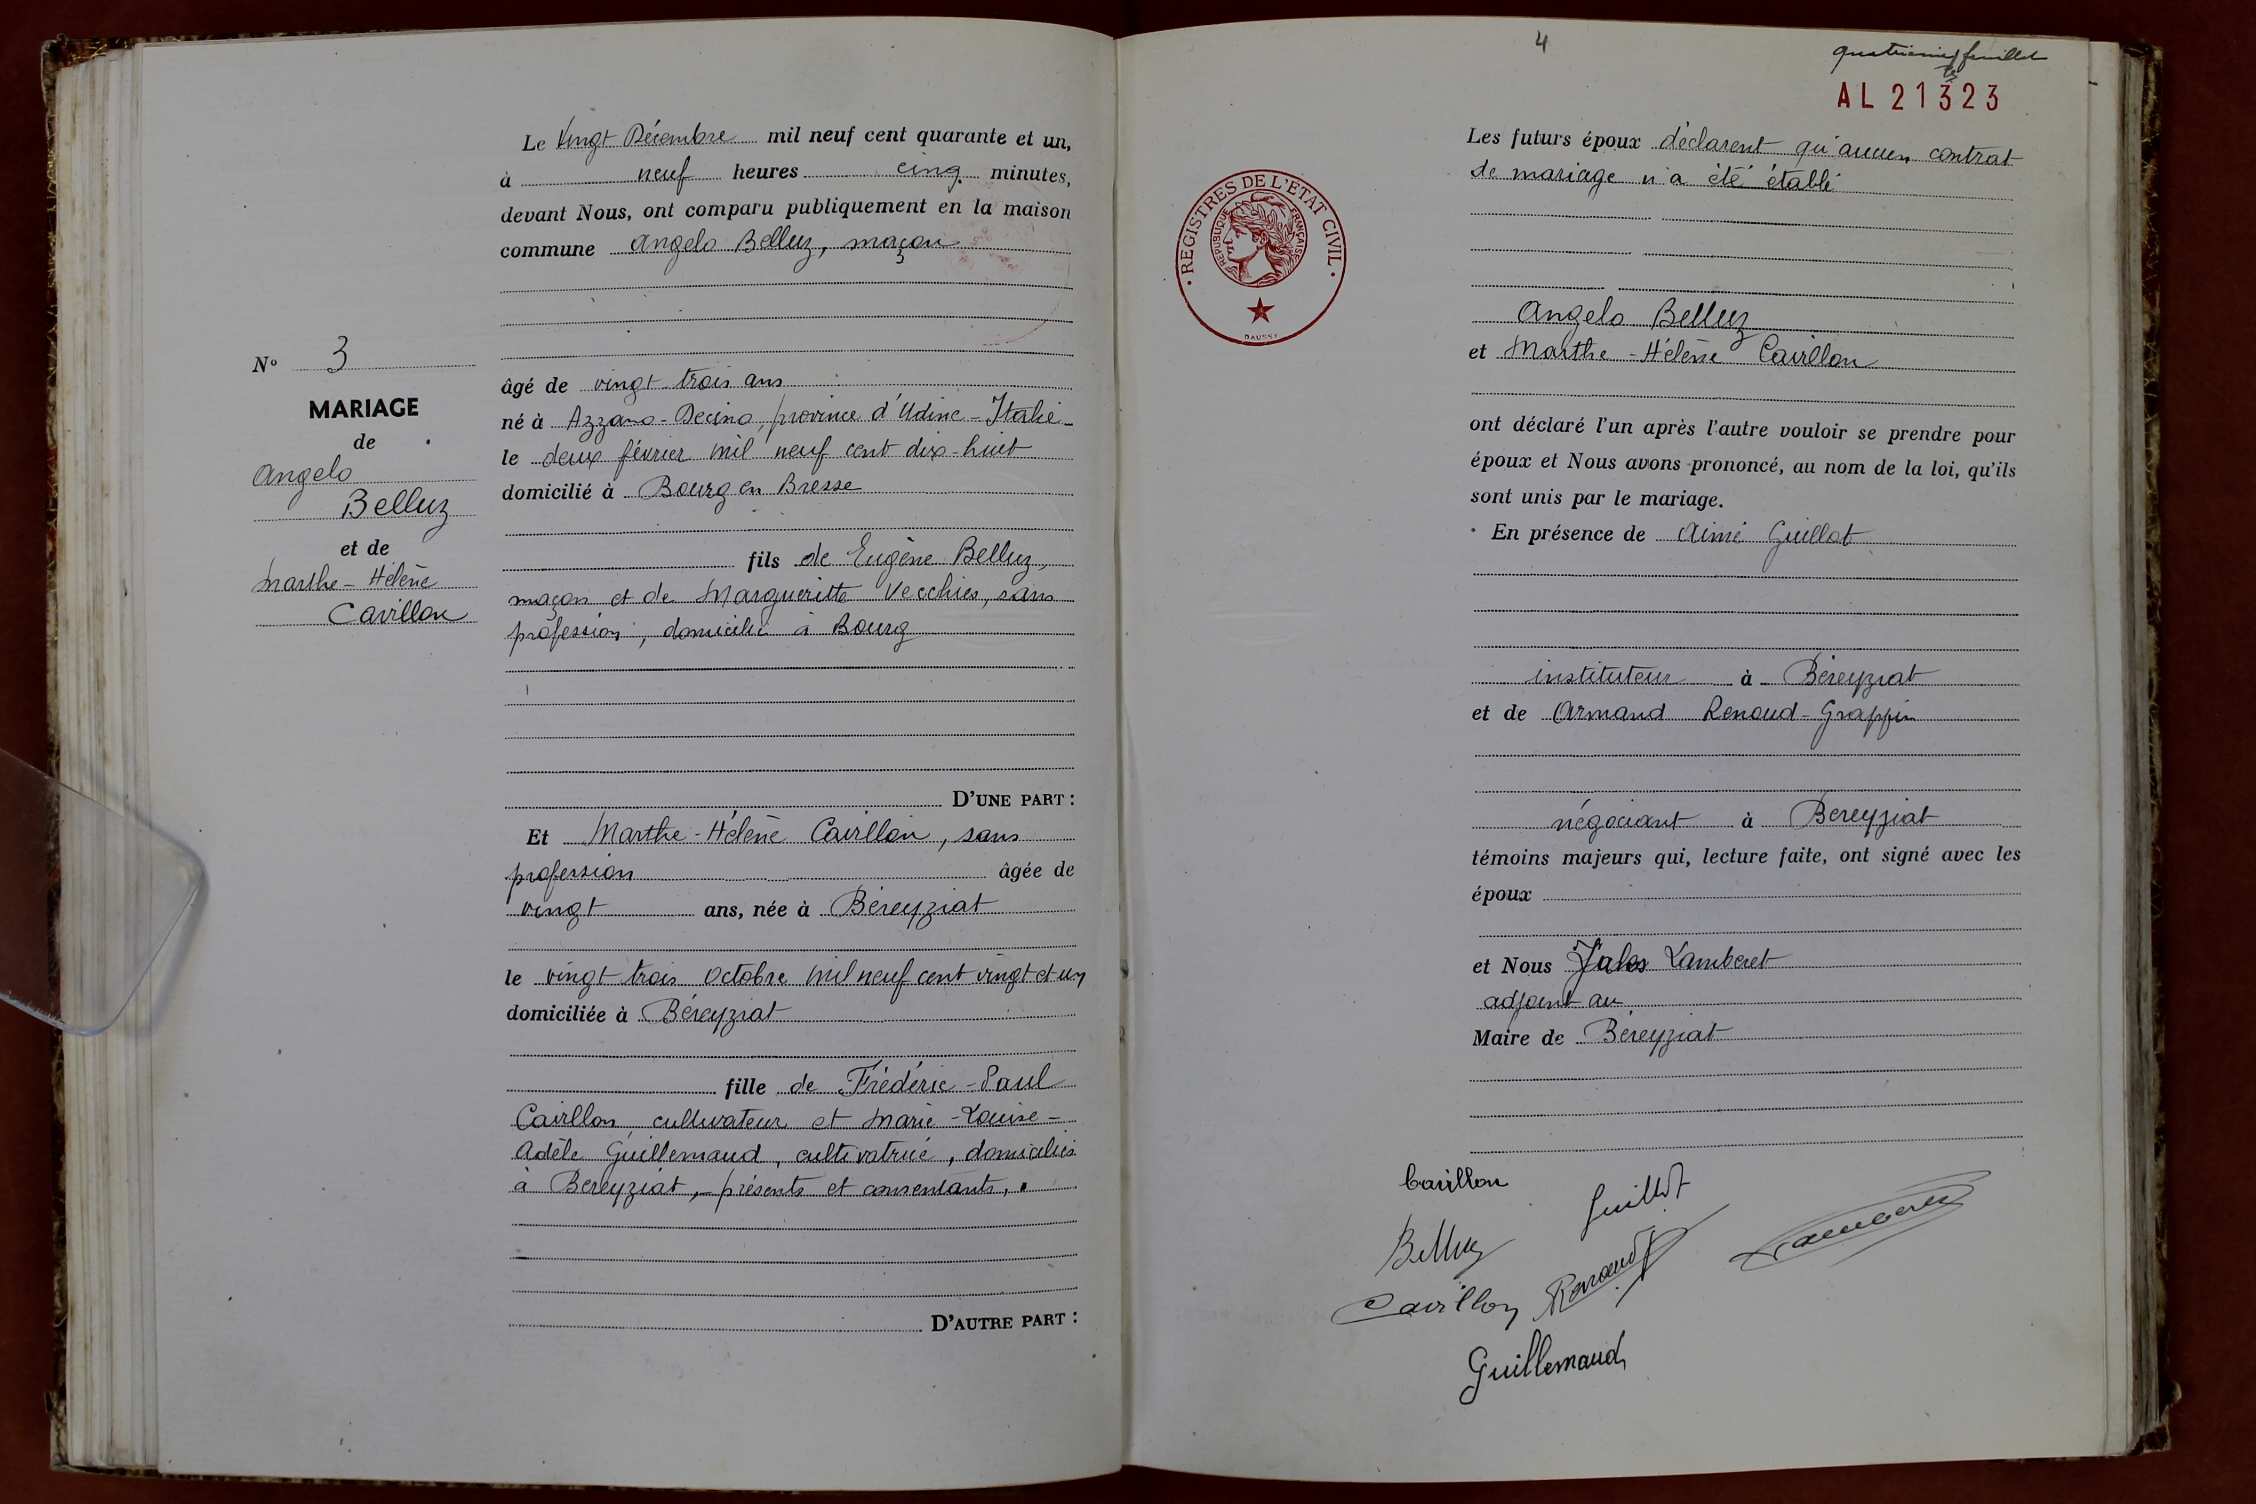 Le Vingt Décembre mil neuf cent quarante et un,
à neuf heures cinq minutes,
devant Nous, ont comparu publiquement en la maison
commune Angelo Belluz, maçon
N° 3
MARIAGE
de
Angelo
Belluz
et de
Marthe-Hélène
Cavillon
âgé de vingt-trois ans
né à Azzano-Decino, province d'Udine-Italie-
le deux février mil neuf cent dix-huit
domicilié à Bourg en Bresse
fils de Eugène Belluz,
maçon et de Margueritte Vecchies, sans
profession, domicilié à Bourg
D'UNE PART :
Et Marthe-Hélène Cavillon, sans
profession âgée de
vingt ans, née à Béreyziat
le vingt trois octobre mil neuf cent vingt et un
domiciliée à Béreyziat
fille de Frédéric-Paul
Cavillon, cultivateur et Marie-Louise-
Adèle Guillemaud, cultivatrice, domiciliés
à Béreyziat, présents et consentants,.
D'AUTRE PART :
4
quatrième feuillet
AL 21323
REGISTRES DE L'ÉTAT CIVIL
RÉPUBLIQUE FRANÇAISE
DAUSSY
Les futurs époux déclarent qu'aucun contrat
de mariage n'a été établi
Angelo Belluz
et Marthe-Hélène Cavillon
ont déclaré l'un après l'autre vouloir se prendre pour
époux et Nous avons prononcé, au nom de la loi, qu'ils
sont unis par le mariage.
En présence de Aimé Guillot
instituteur à Béreyziat
et de Armand Renoud-Grappin
négociant à Béreyziat
témoins majeurs qui, lecture faite, ont signé avec les
époux
et Nous Jules Lamberet
adjoint au
Maire de Béreyziat
Cavillon
Guillot
Belluz
Lamberet
Cavillon
Renoud
Guillemaud